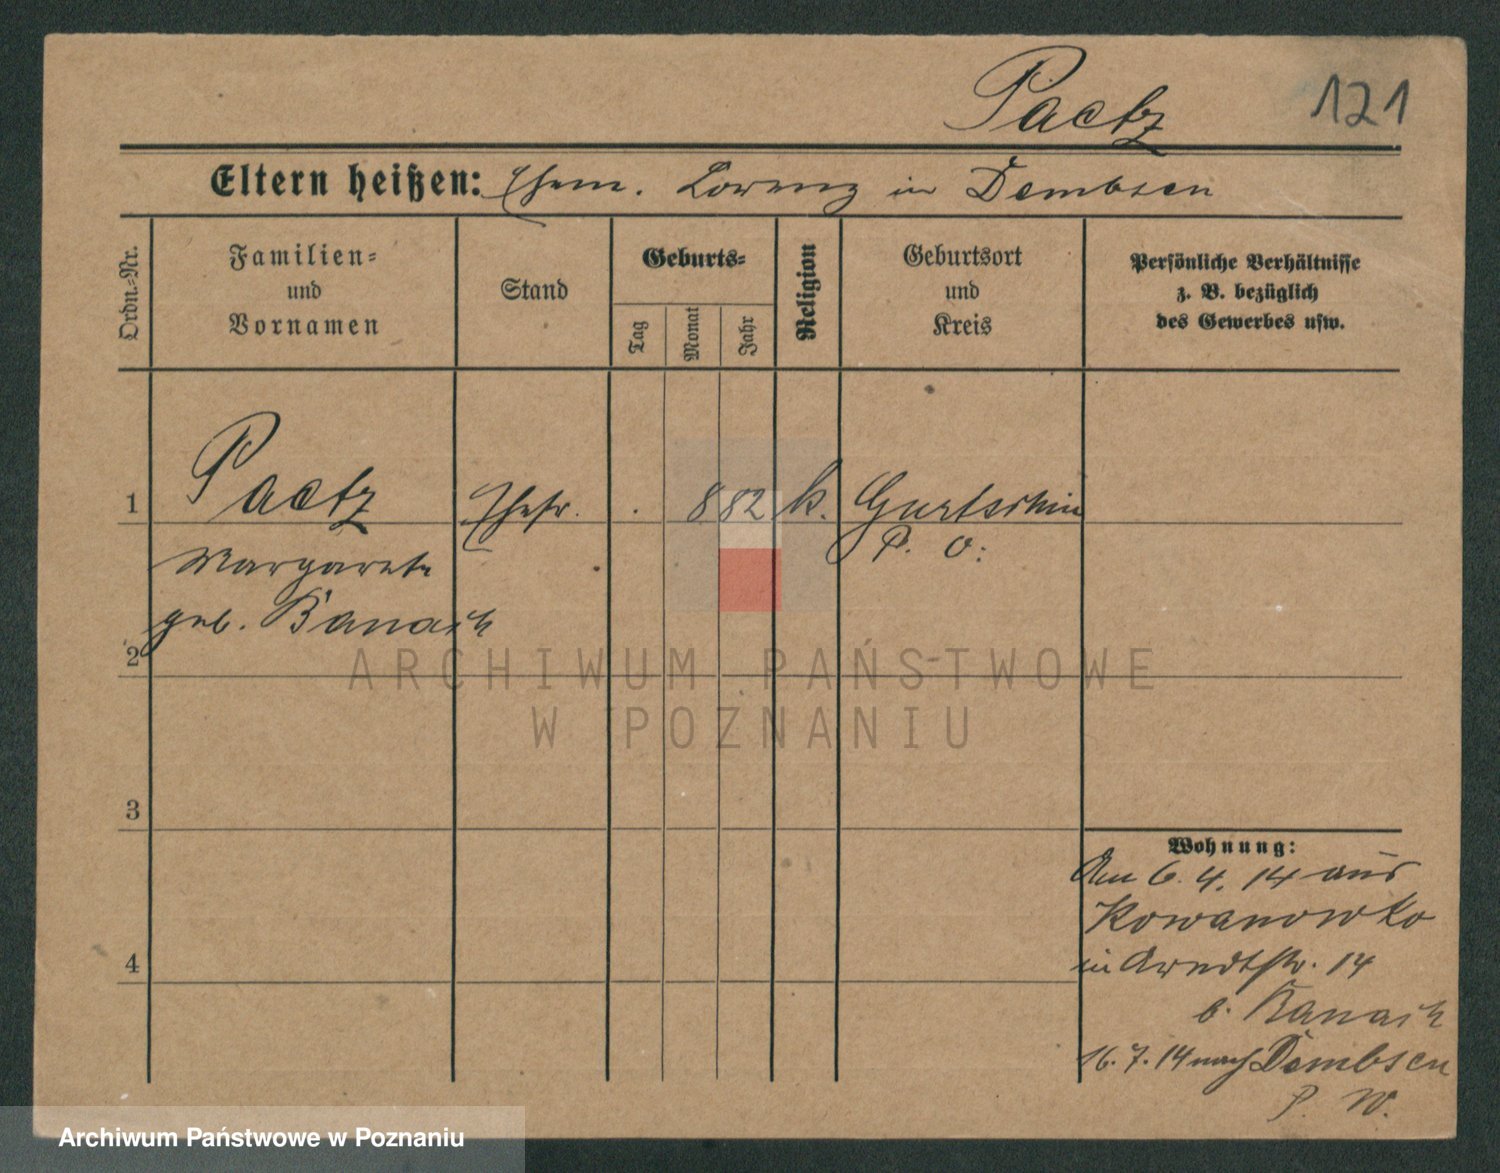 Paetz
121
Eltern heißen: Ehem. Lorenz in Dembsen
Ordn.-Nr.
Familien-
und
Vornamen
Stand
Geburts-
Tag
Monat
Jahr
Religion
Geburtsort
und
Kreis
Persönliche Verhältnisse
z. B. bezüglich
des Gewerbes usw.
1
Paetz
Ehefr.
. 8 82 k. Gurtschin
P. O.
Margarete
geb. Banach
2
ARCHIWUM PAŃSTWOWE
W POZNANIU
3
4
Wohnung:
Am 6. 4. 14 aus
Kowanowko
in Arndtstr. 14
b. Banach
16. 7. 14 nach Dembsen
P. W.
Archiwum Państwowe w Poznaniu